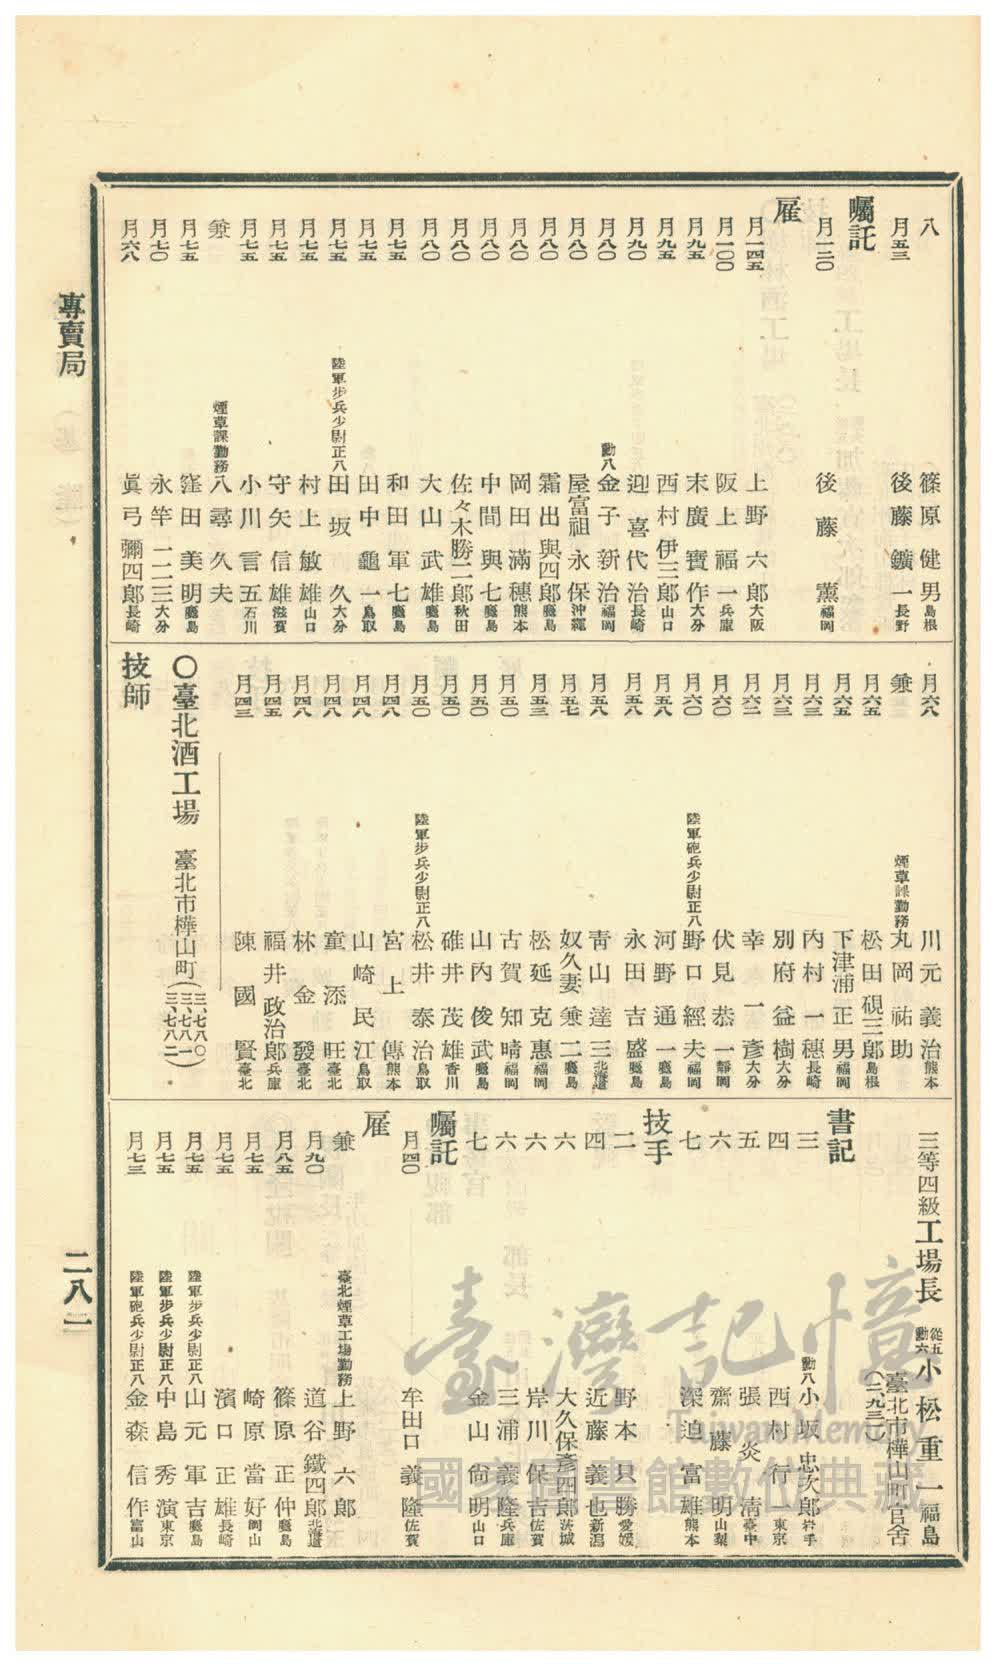 專賣局
二八二
八 篠原健男 島根
月五三 後藤鑛一 長野
囑託
月一二〇 後藤薰 福岡
雇
月一四五 上野六郎 大阪
月一〇〇 阪上福一 兵庫
月九五 末廣寶作 大分
月九五 西村伊三郎 山口
月九〇 迎喜代治 長崎
月八〇 勳八 金子新治 福岡
月八〇 屋富祖永保 沖繩
月八〇 霜出與四郎 鹿兒島
月八〇 岡田滿穗 熊本
月八〇 中間與七 鹿兒島
月八〇 佐々木勝二郎 秋田
月八〇 大山武雄 鹿兒島
月七五 和田軍七 鹿兒島
月七五 田中龜一 鳥取
月七五 陸軍步兵少尉正八 田坂久 大分
月七五 村上敏雄 山口
月七五 守矢信雄 滋賀
月七五 小川言五 石川
兼 煙草課勤務 八尋久夫
月七五 窪田美明 鹿兒島
月七〇 永竿一二三 大分
月六八 眞弓彌四郎 長崎
月六八 川元義治 熊本
兼 煙草課勤務 丸岡祐助
月六五 松田硯三郎 島根
月六五 下津浦正男 福岡
月六三 內村一穗 長崎
月六三 別府益樹 大分
月六二 幸一彥 大分
月六〇 伏見恭一 靜岡
月六〇 陸軍砲兵少尉正八 野口經夫 福岡
月五八 河野通一 鹿兒島
月五八 永田吉盛 鹿兒島
月五八 靑山達三 北海道
月五七 奴久妻兼二 鹿兒島
月五三 松延克惠 福岡
月五〇 古賀知晴 福岡
月五〇 山內俊武 鹿兒島
月五〇 碓井茂雄 香川
月五〇 陸軍步兵少尉正八 松井泰治 鳥取
月四八 宮上傳 熊本
月四八 山崎民江 鳥取
月四八 童添旺 臺北
月四八 林金發 臺北
月四五 福井政治郎 兵庫
月四三 陳國賢 臺北
〇臺北酒工場 臺北市樺山町(三、七八〇 三、七八一 三、七八二)
技師
三等四級 工場長 從五勳六 小松重一 福島
臺北市樺山町官舍(二、九三一)
書記
三 勳八 小坂忠次郎 岩手
四 西村行一 東京
五 張炎淸 臺中
六 齋藤明 山梨
七 深迫富雄 熊本
技手
二 野本只勝 愛媛
四 近藤義也 新潟
六 大久保彥四郎 茨城
六 岸川保吉 佐賀
六 三浦義隆 兵庫
七 金山尙明 山口
囑託
月四〇 牟田口義隆 佐賀
雇
兼 臺北煙草工場勤務 上野六郎
月九〇 道谷鐵四郎 北海道
月八五 篠原正仲 鹿兒島
月七五 崎原當好 岡山
月七五 濱口正雄 長崎
月七五 陸軍步兵少尉正八 山元軍吉 鹿兒島
月七五 陸軍步兵少尉正八 中島秀演 東京
月七三 陸軍砲兵少尉正八 金森信作 富山
臺灣記憶
Taiwan Memory
國家圖書館數位典藏